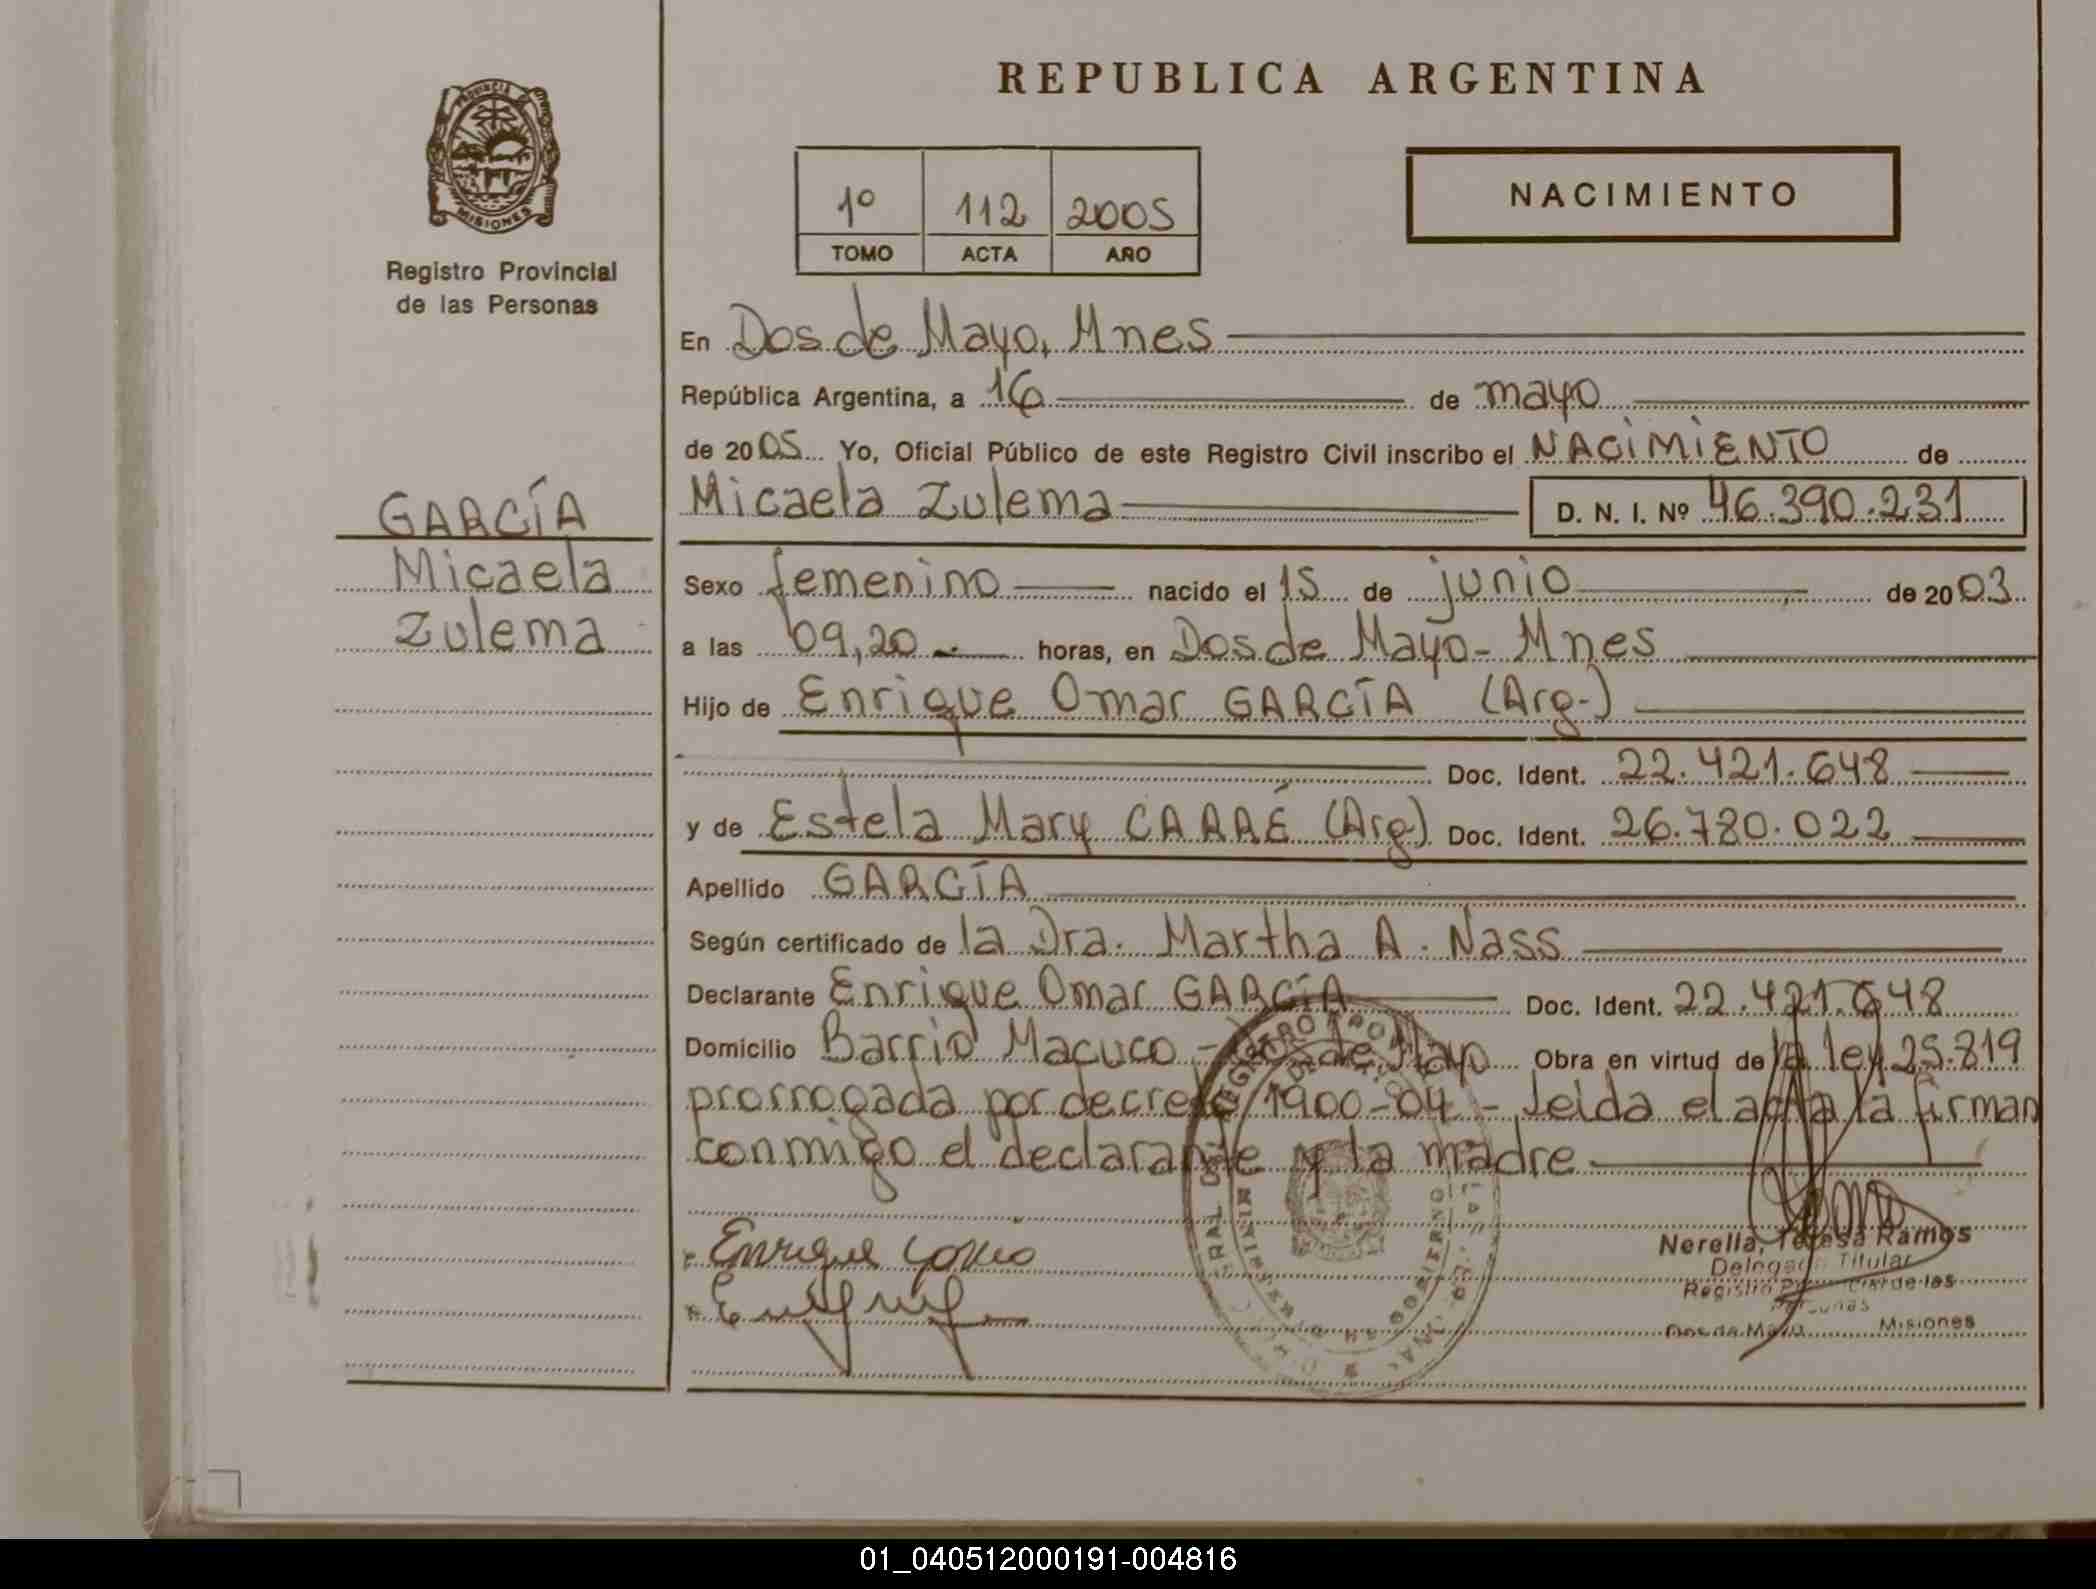 REPUBLICA ARGENTINA
PROVINCIA DE
MISIONES
Registro Provincial
de las Personas
1º 112 2005
TOMO ACTA AÑO
NACIMIENTO
En Dos de Mayo, Mnes
República Argentina, a 16 de mayo
de 2005 Yo, Oficial Público de este Registro Civil inscribo el NACIMIENTO de
Micaela Zulema D. N. I. Nº 46.390.231
GARCÍA
Micaela
Zulema
Sexo femenino nacido el 15 de junio de 2003
a las 09,20 horas, en Dos de Mayo - Mnes
Hijo de Enrique Omar GARCÍA (Arg.)
Doc. Ident. 22.421.648
y de Estela Mary CARRÉ (Arg) Doc. Ident. 26.780.022
Apellido GARCÍA
Según certificado de la Dra. Martha A. Nass
Declarante Enrique Omar GARCÍA Doc. Ident. 22.421.648
Domicilio Barrio Macuco - Dos de Mayo Obra en virtud de la ley 25.819
prorrogada por decreto 1900-04 - leída el acta la firman
conmigo el declarante y la madre
Enrique
Nerella, Teresa Ramos
Delegada Titular
Registro Provincial de las
Personas
Dos de Mayo Misiones
01_040512000191-004816